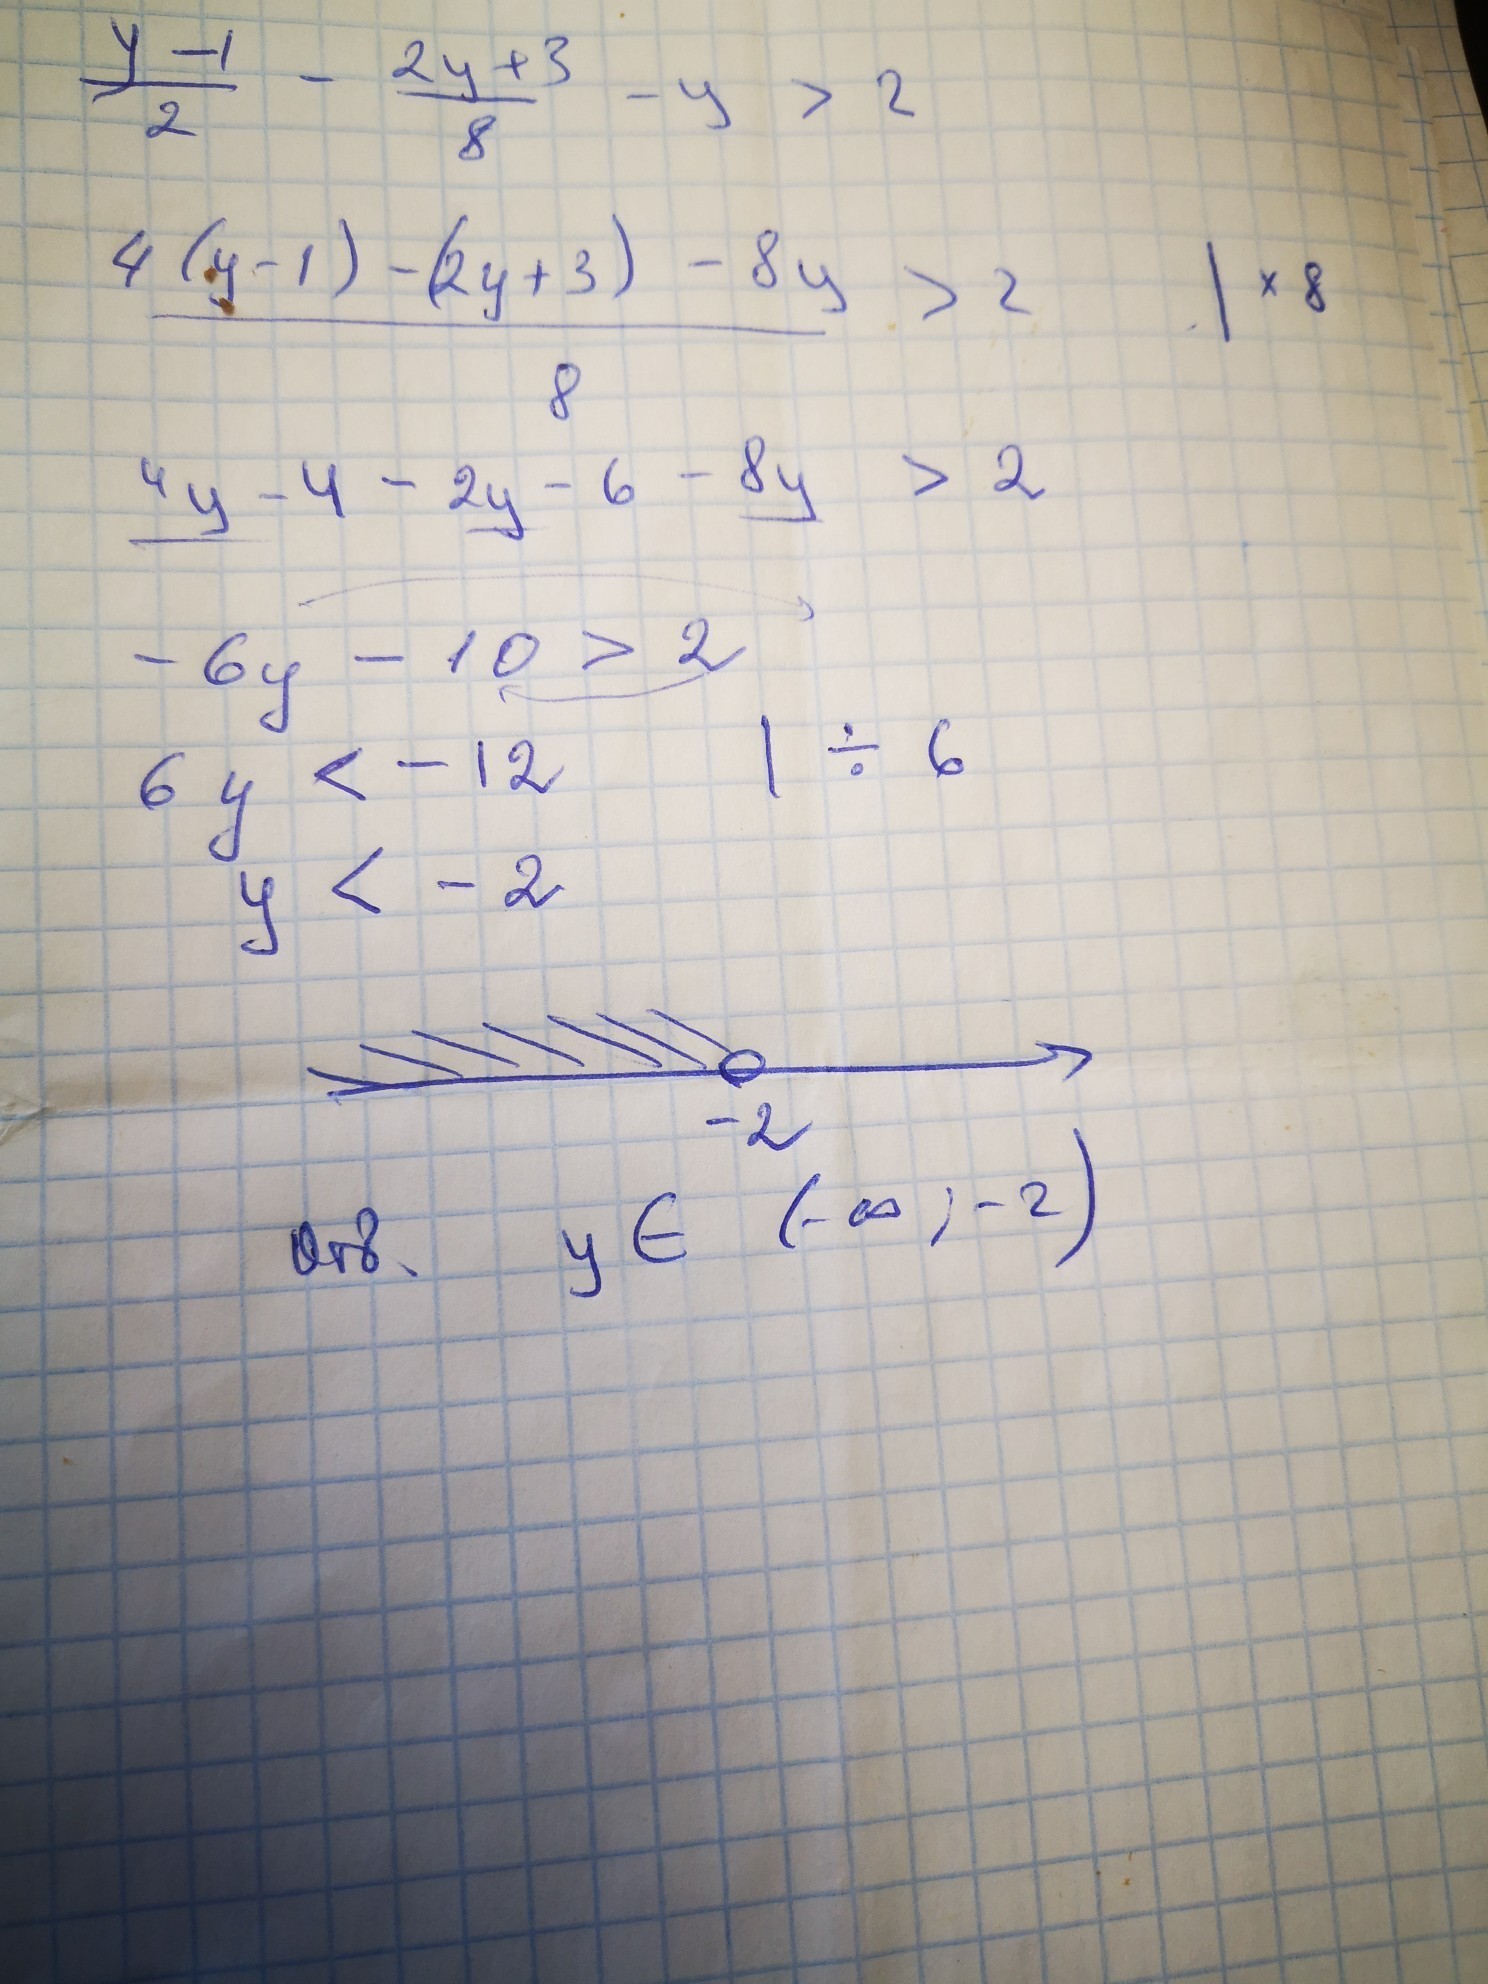 y - 1 / 2 - 2y + 3 / 8 - y > 2
4 (y - 1) - (2y + 3) - 8y / 8 > 2 | × 8
4y - 4 - 2y - 6 - 8y > 2
- 6y - 10 > 2
6y < - 12 | ÷ 6
y < - 2
-2
Отв. y ∈ (-∞ ; -2)